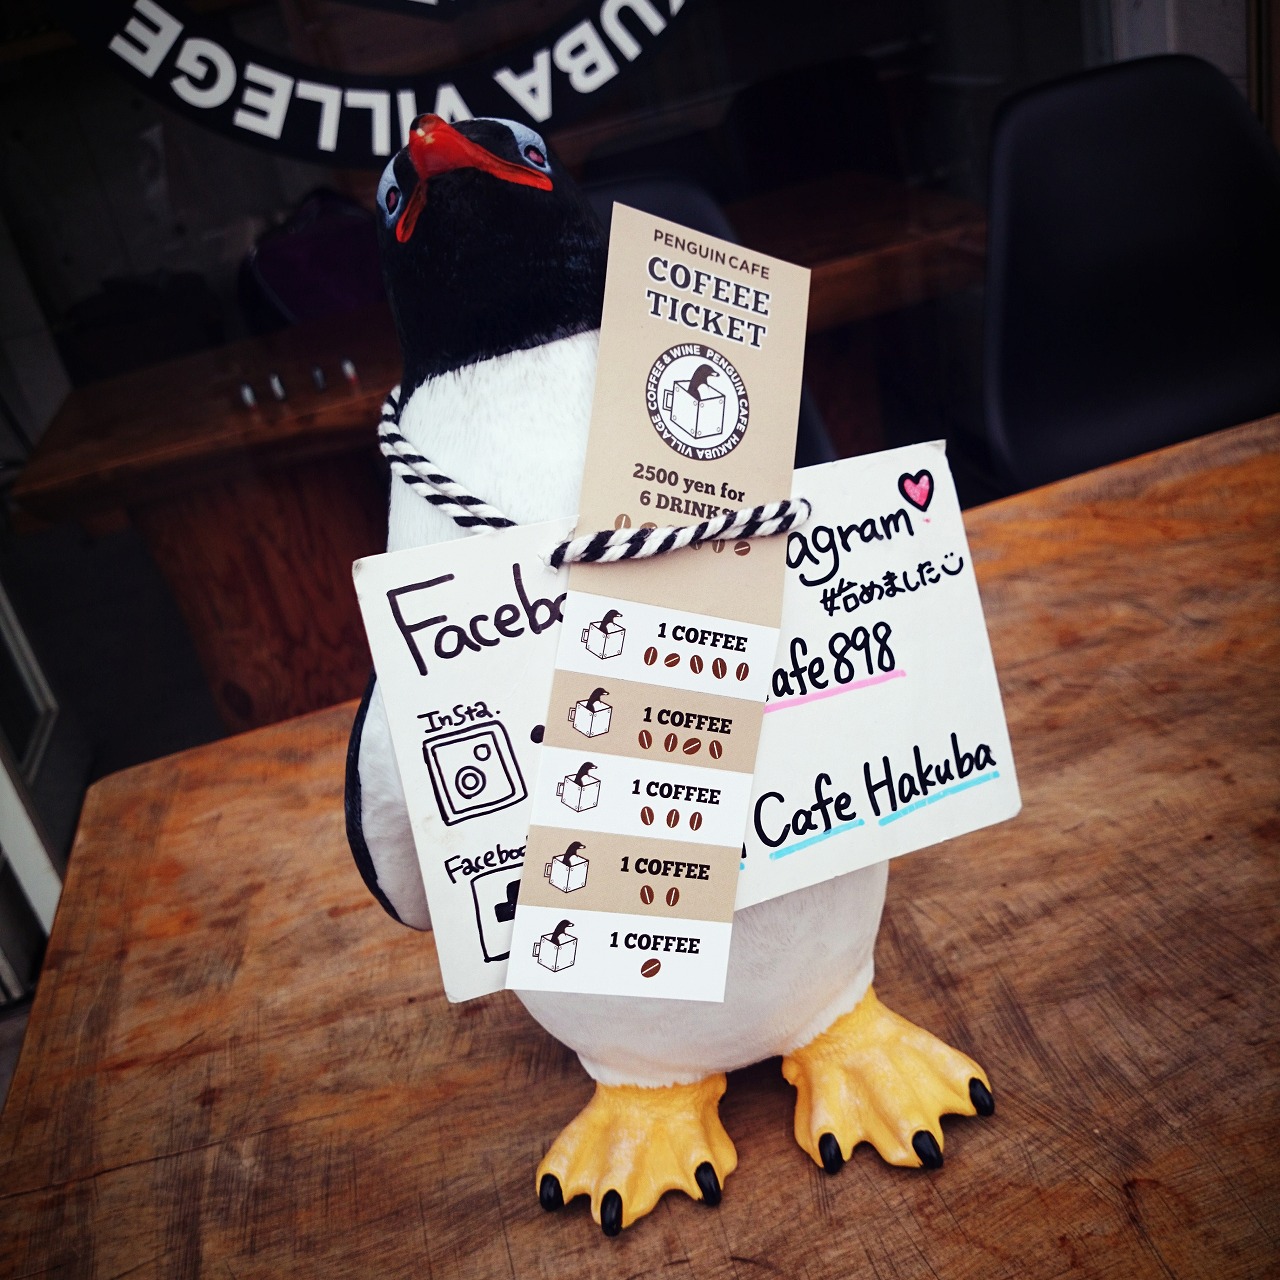 KUBA VILLEGE
PENGUIN CAFE
COFEEE
TICKET
COFFEE & WINE PENGUIN CAFE HAKUBA VILLAGE
2500 yen for
6 DRINKS
1 COFFEE
1 COFFEE
1 COFFEE
1 COFFEE
1 COFFEE
Facebo
Insta.
Faceboo
agram
始めました
afe898
Cafe Hakuba